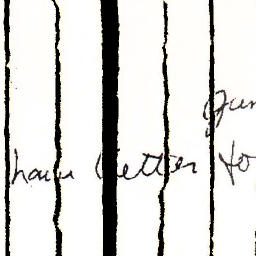 Jun
have better to